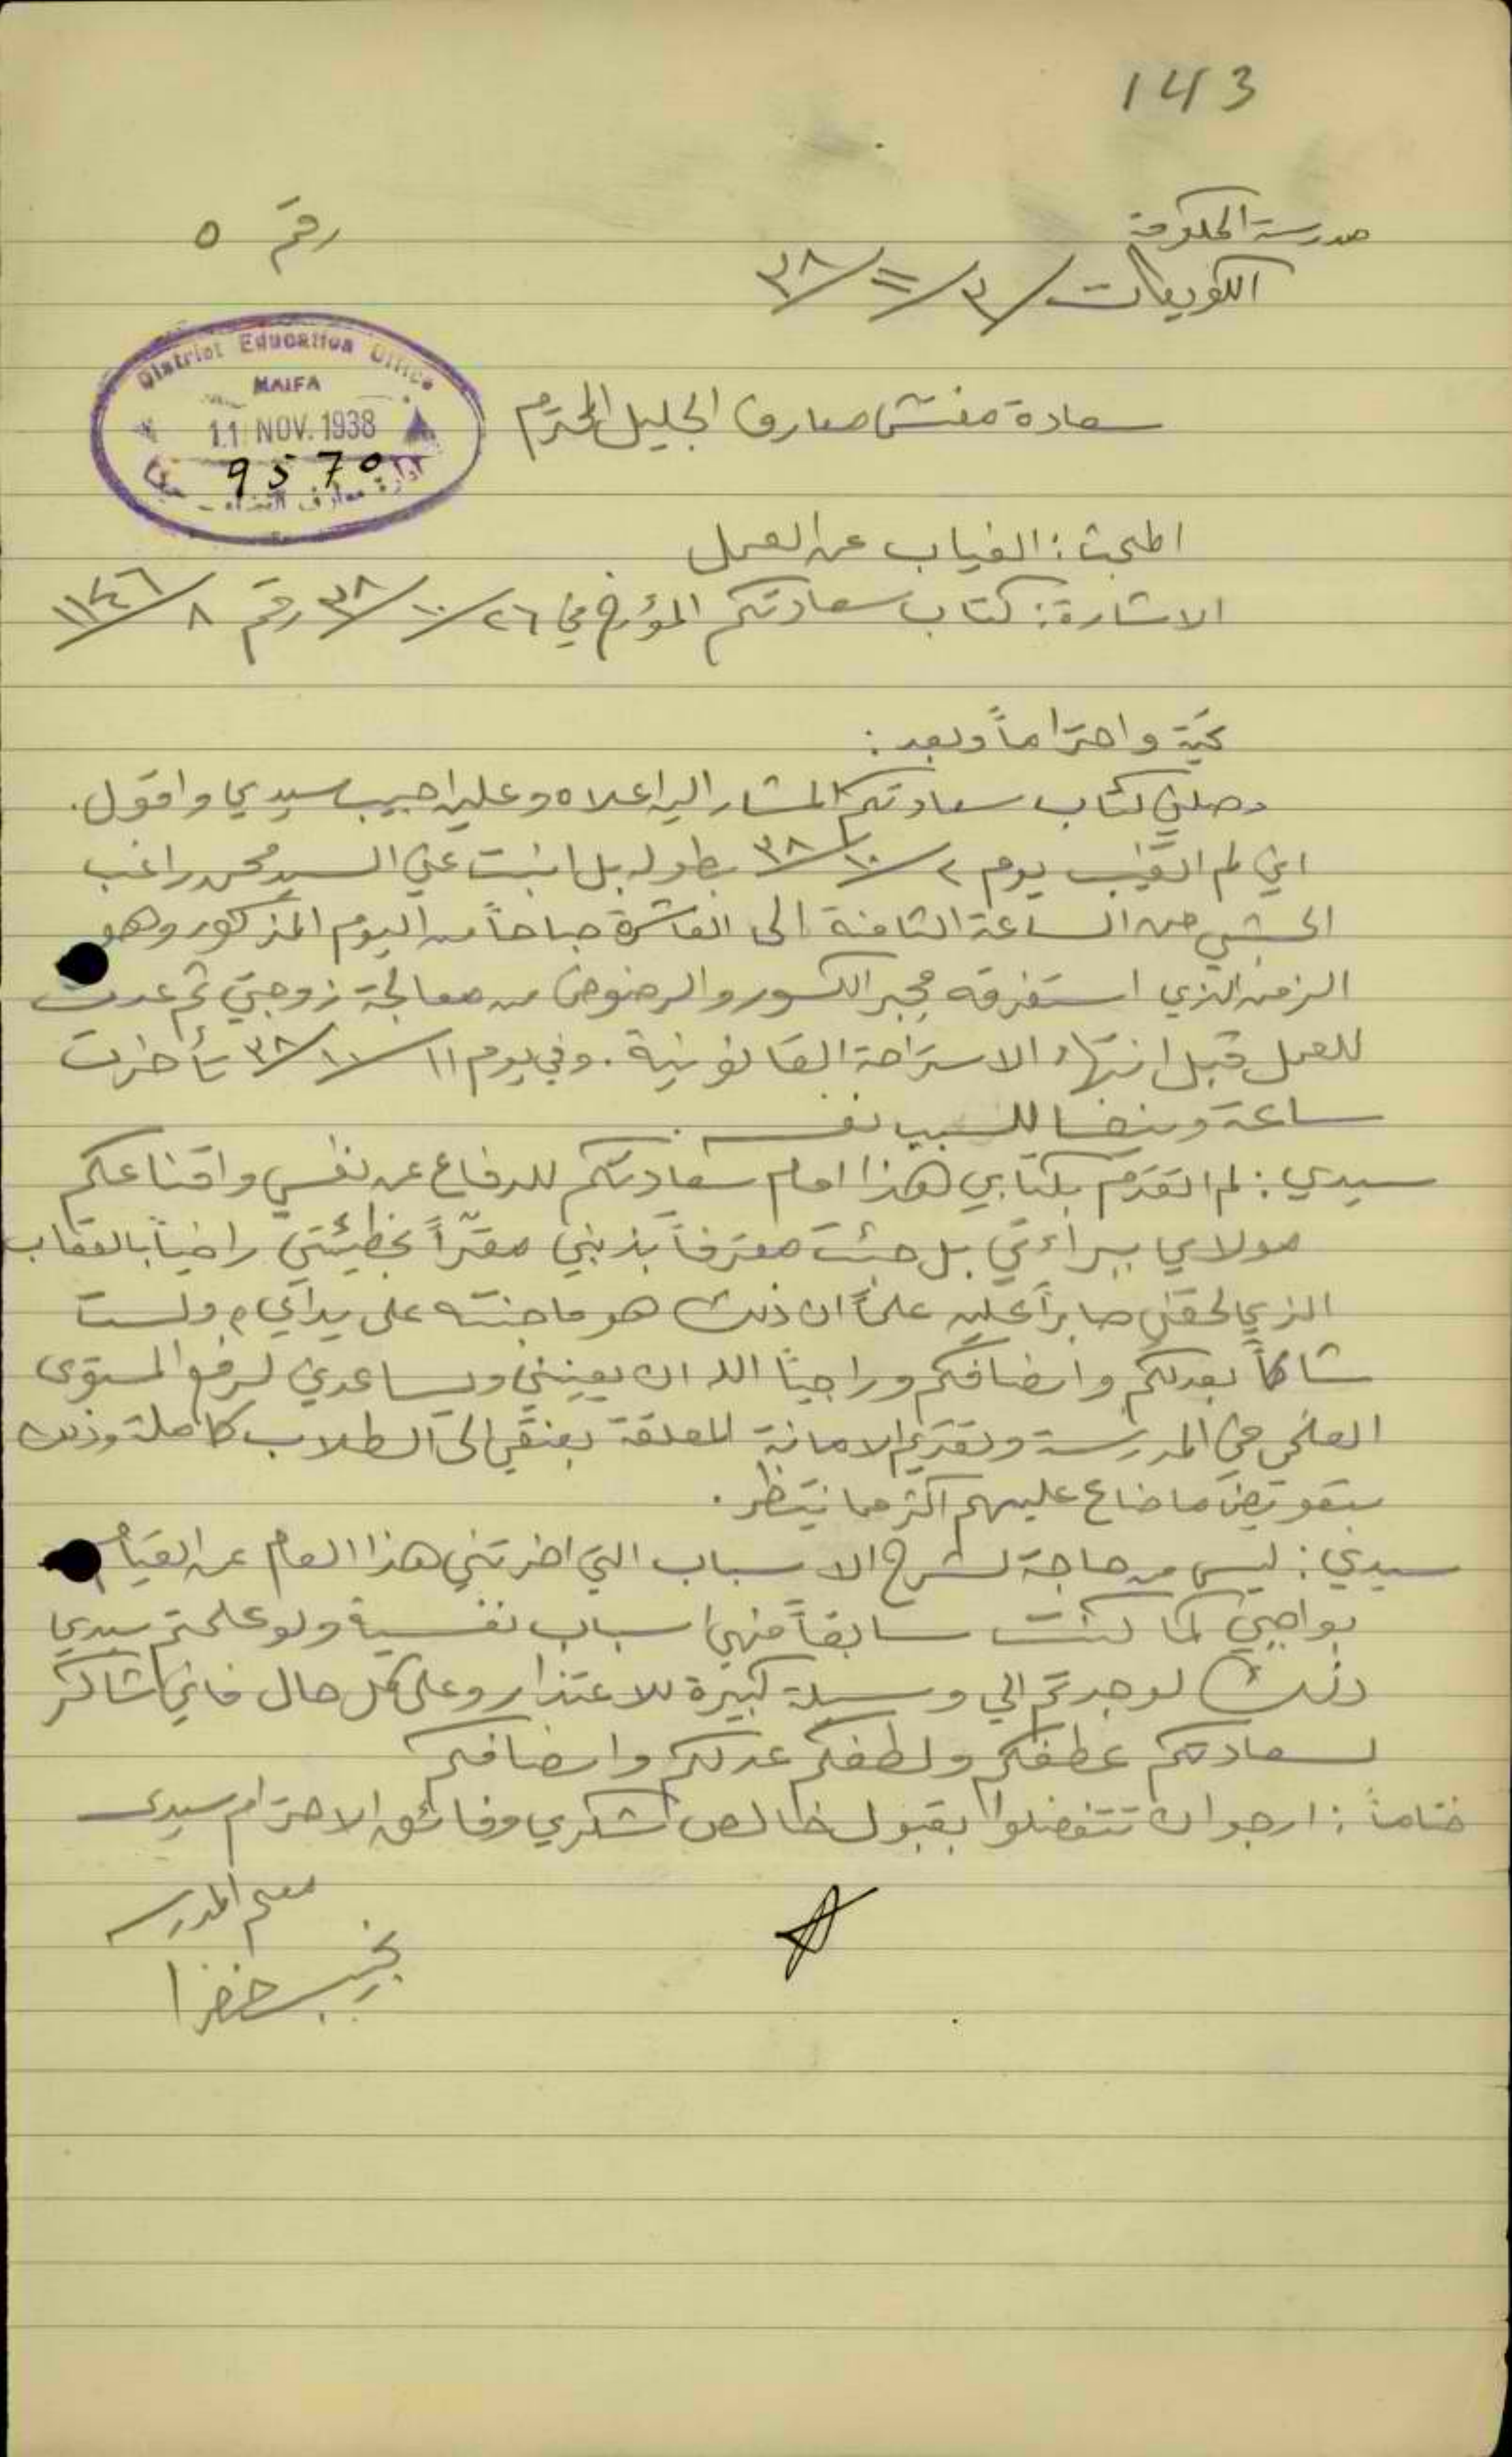 143
مدرسة الحكومة
رقم ٥
الكويكات ٣/١١/٣٨
District Education Office
HAIFA
11 NOV. 1938
9570
ادارة معارف القضاء - حيفا
سعادة مفتش معارف الجليل المحترم
المبحث : الغياب عن العمل
الاشارة : كتاب سعادتكم المؤرخ في ٢٦/١٠/٣٨ رقم ٨/١١٤٦
تحية واحتراماً وبعد :
وصلني كتاب سعادتكم المشار اليه اعلاه وعليه اجيب سيدي واقول .
اني لم اتغيب يوم ٢/١٠/٣٨ بطوله بل انبت عني السيد محمد راغب
الحبشي من الساعة الثامنة الى العاشرة صباحاً من اليوم المذكور وهو
الزمن الذي استغرقه مجبر الكسور والرضوض من معالجة زوجتي ثم عدت
للعمل قبل انتهاء الاستراحة القانونية . وفي يوم ١١/١٠/٣٨ تأخرت
ساعة ونصفا للسبب نفسه .
سيدي : لم اتقدم بكتابي هذا امام سعادتكم للدفاع عن نفسي واقناعكم
مولاي ببراءتي بل جئت معترفاً بذنبي مقرّاً بخطيئتي راضياً بالعقاب
الذي لحقني صابراً عليه علماً ان ذلك هو ما جنته علي يداي ، ولست
شاكاً بعدلكم وانصافكم وراجياً الله ان يعينني ويساعدني لرفع المستوى
العلمي في المدرسة وتقديم الامانة المعلقة بعنقي الى الطلاب كاملة وذلك
بتعويض ما ضاع عليهم اكثر مما ينتظر .
سيدي : ليس من حاجة لشرح الاسباب التي اخرتني هذا العام عن القيام
بواجبي كما كنت سابقاً فهي اسباب نفسية ولو علمتم سيدي
ذلك لوجدتم الي وسيلة كبيرة للاعتذار وعلى كل حال فاني شاكر
لسعادتكم عطفكم ولطفكم عدلكم وانصافكم
ختاماً : ارجو ان تتفضلوا بقبول خالص شكري وفائق الاحترام سيدي
معلم المدرسة
نجيب خضرا